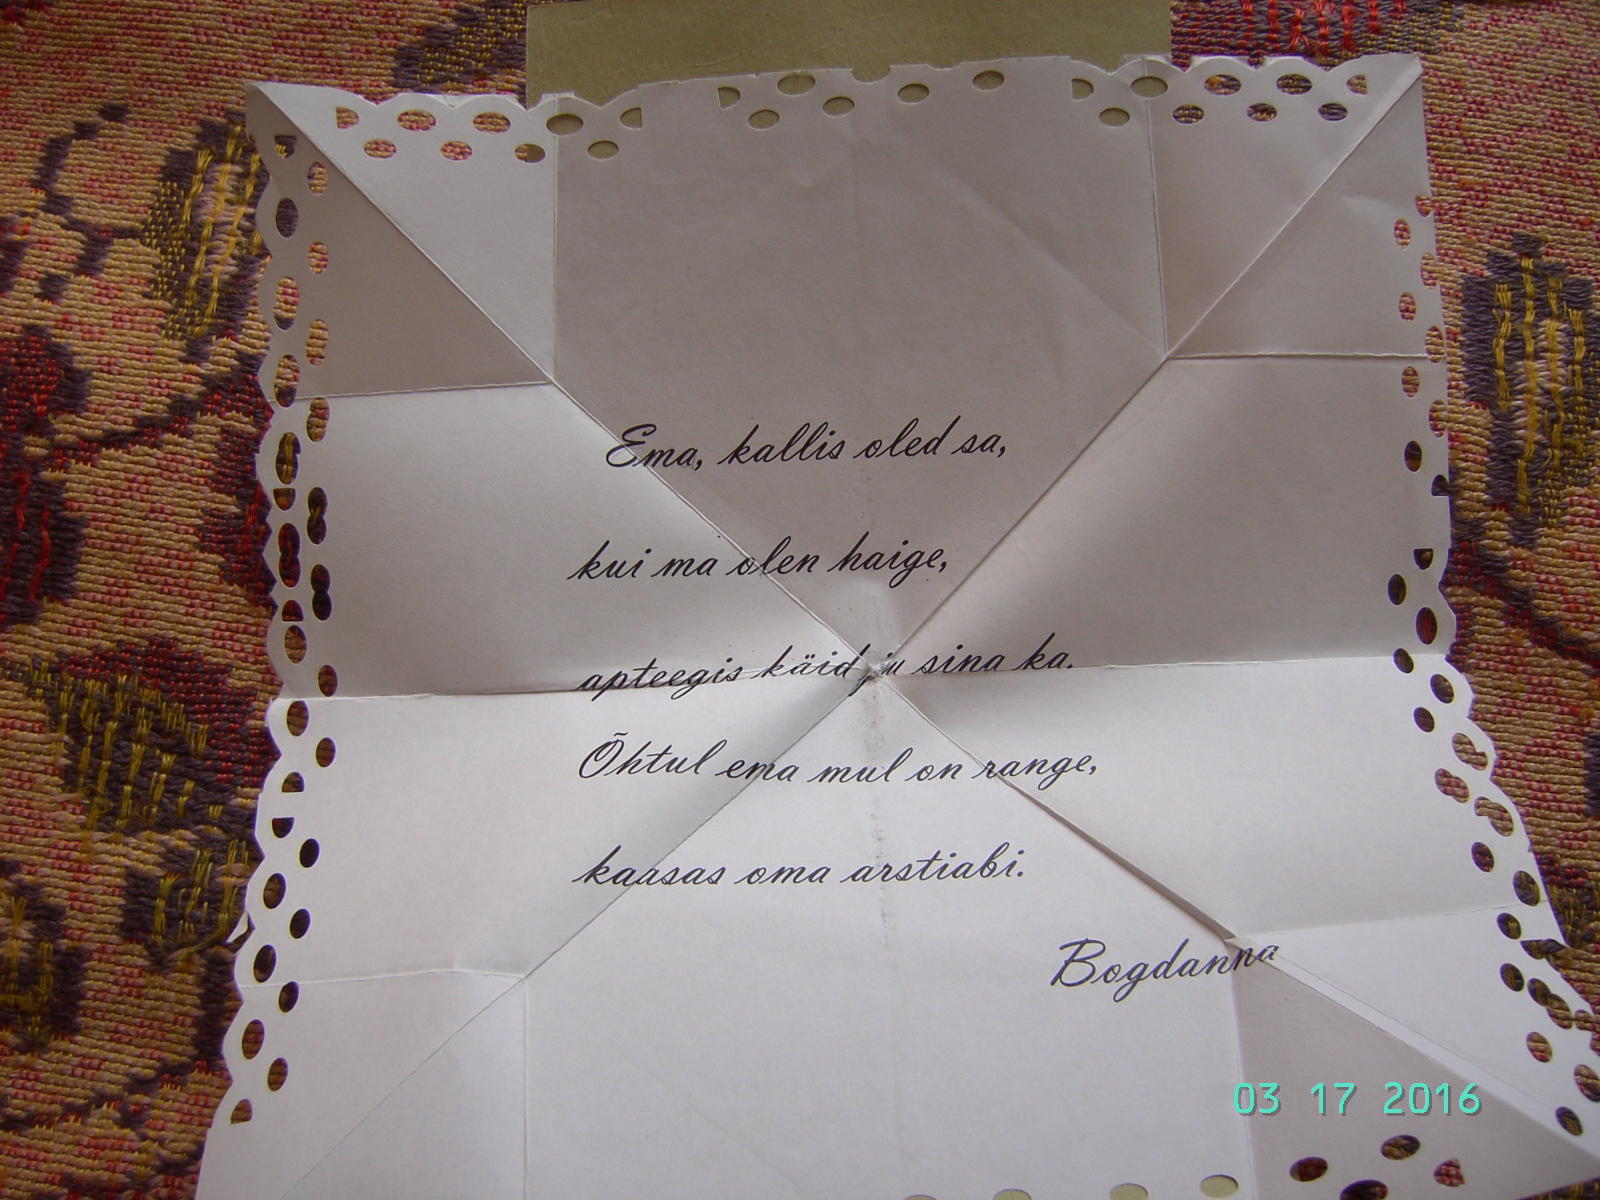 Ema, kallis oled sa,
kui ma olen haige,
apteegis käid ju sina ka.
Õhtul ema mul on range,
kaasas oma arstiabi.
Bogdanna
03 17 2016